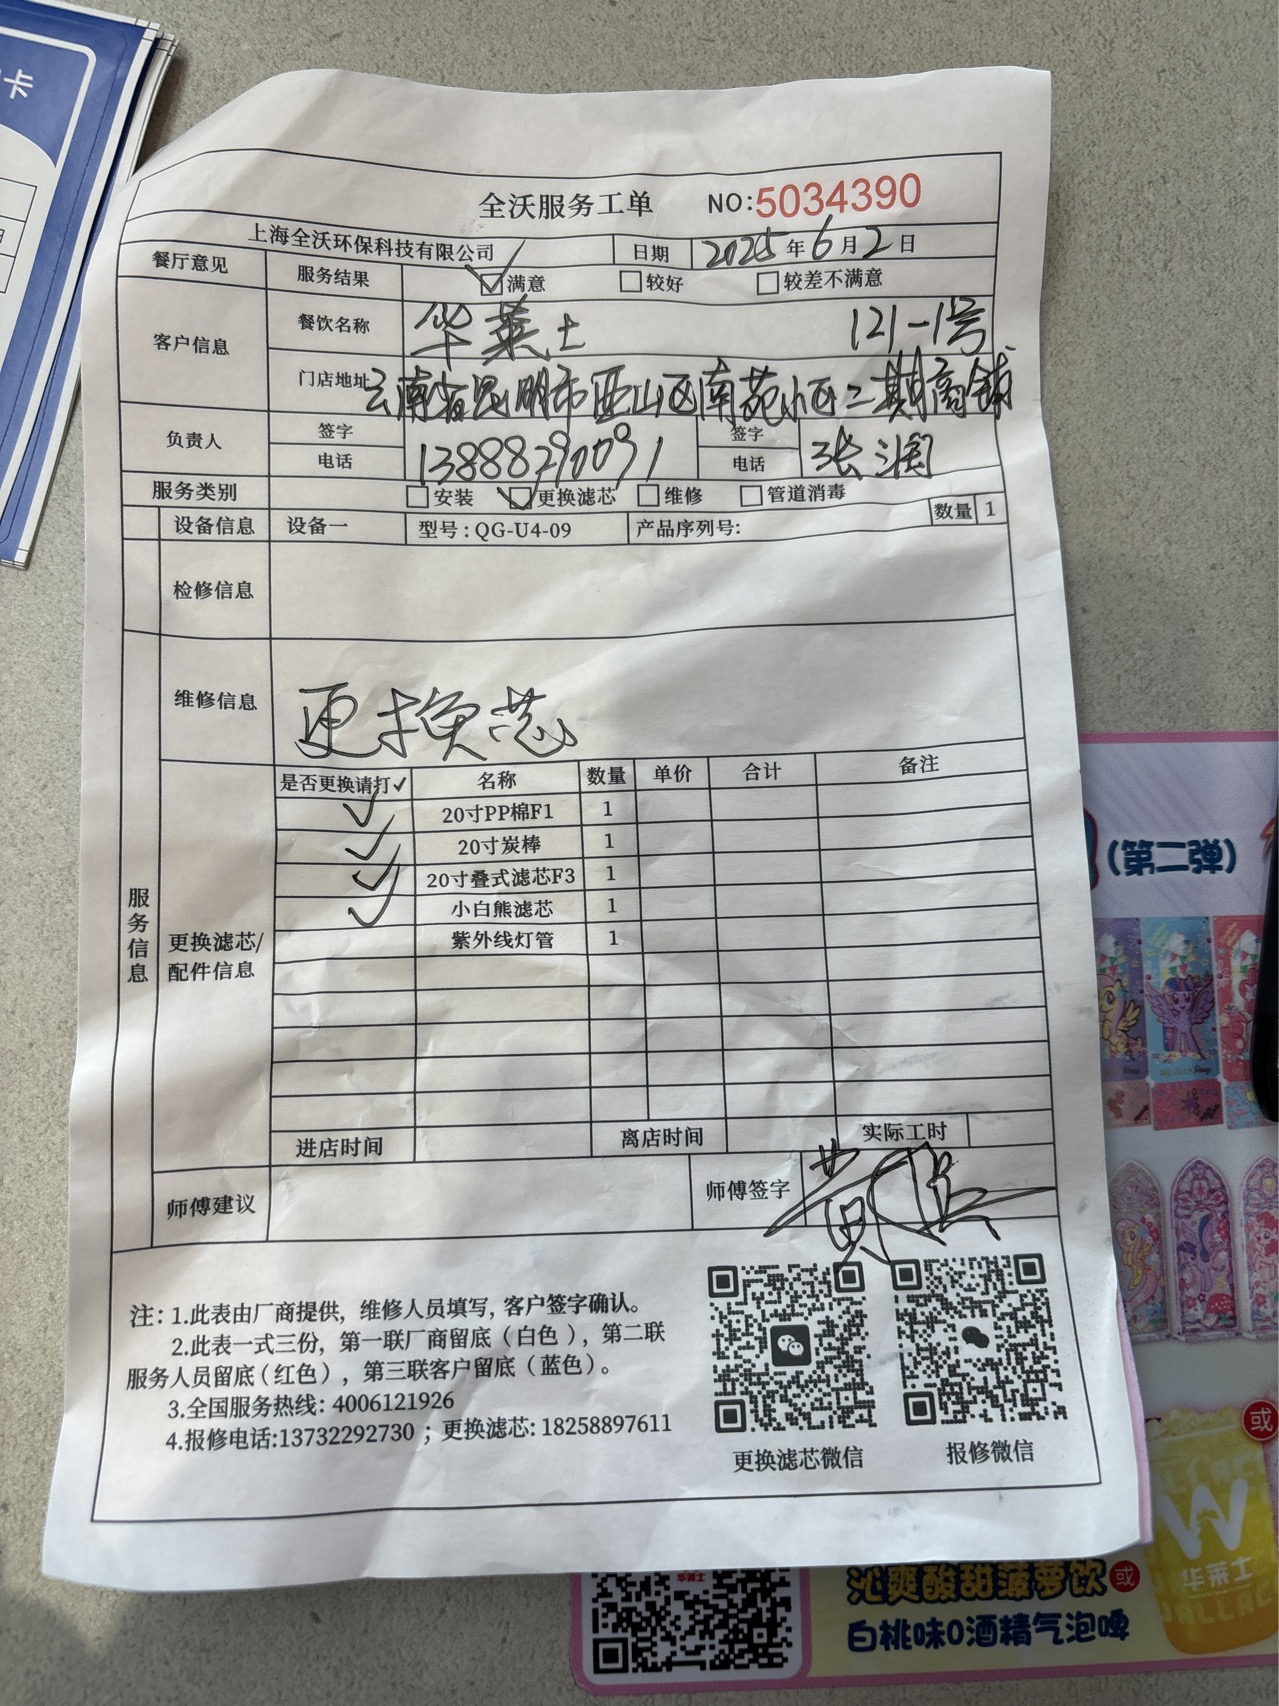 卡
全沃服务工单 NO:5034390
上海全沃环保科技有限公司 日期 2025年6月2日
餐厅意见 服务结果 ☑满意 □较好 □较差不满意
客户信息 餐饮名称 华莱士 121-1号
门店地址 云南省昆明市西山区南苑小区二期商铺
负责人 签字 签字
电话 13888290091 电话 张润
服务类别 □安装 ☑更换滤芯 □维修 □管道消毒
设备信息 设备一 型号:QG-U4-09 产品序列号: 数量 1
检修信息
维修信息 更换芯
服务信息
更换滤芯/配件信息
是否更换请打✓ 名称 数量 单价 合计 备注
✓ 20寸PP棉F1 1
✓ 20寸炭棒 1
✓ 20寸叠式滤芯F3 1
✓ 小白熊滤芯 1
紫外线灯管 1
进店时间 离店时间 实际工时
师傅建议 师傅签字 黄
注:1.此表由厂商提供,维修人员填写,客户签字确认。
2.此表一式三份,第一联厂商留底(白色),第二联
服务人员留底(红色),第三联客户留底(蓝色)。
3.全国服务热线:4006121926
4.报修电话:13732292730;更换滤芯:18258897611
更换滤芯微信 报修微信
(第二弹)
或
W
华莱士
沁爽酸甜菠萝饮 或
白桃味0酒精气泡啤